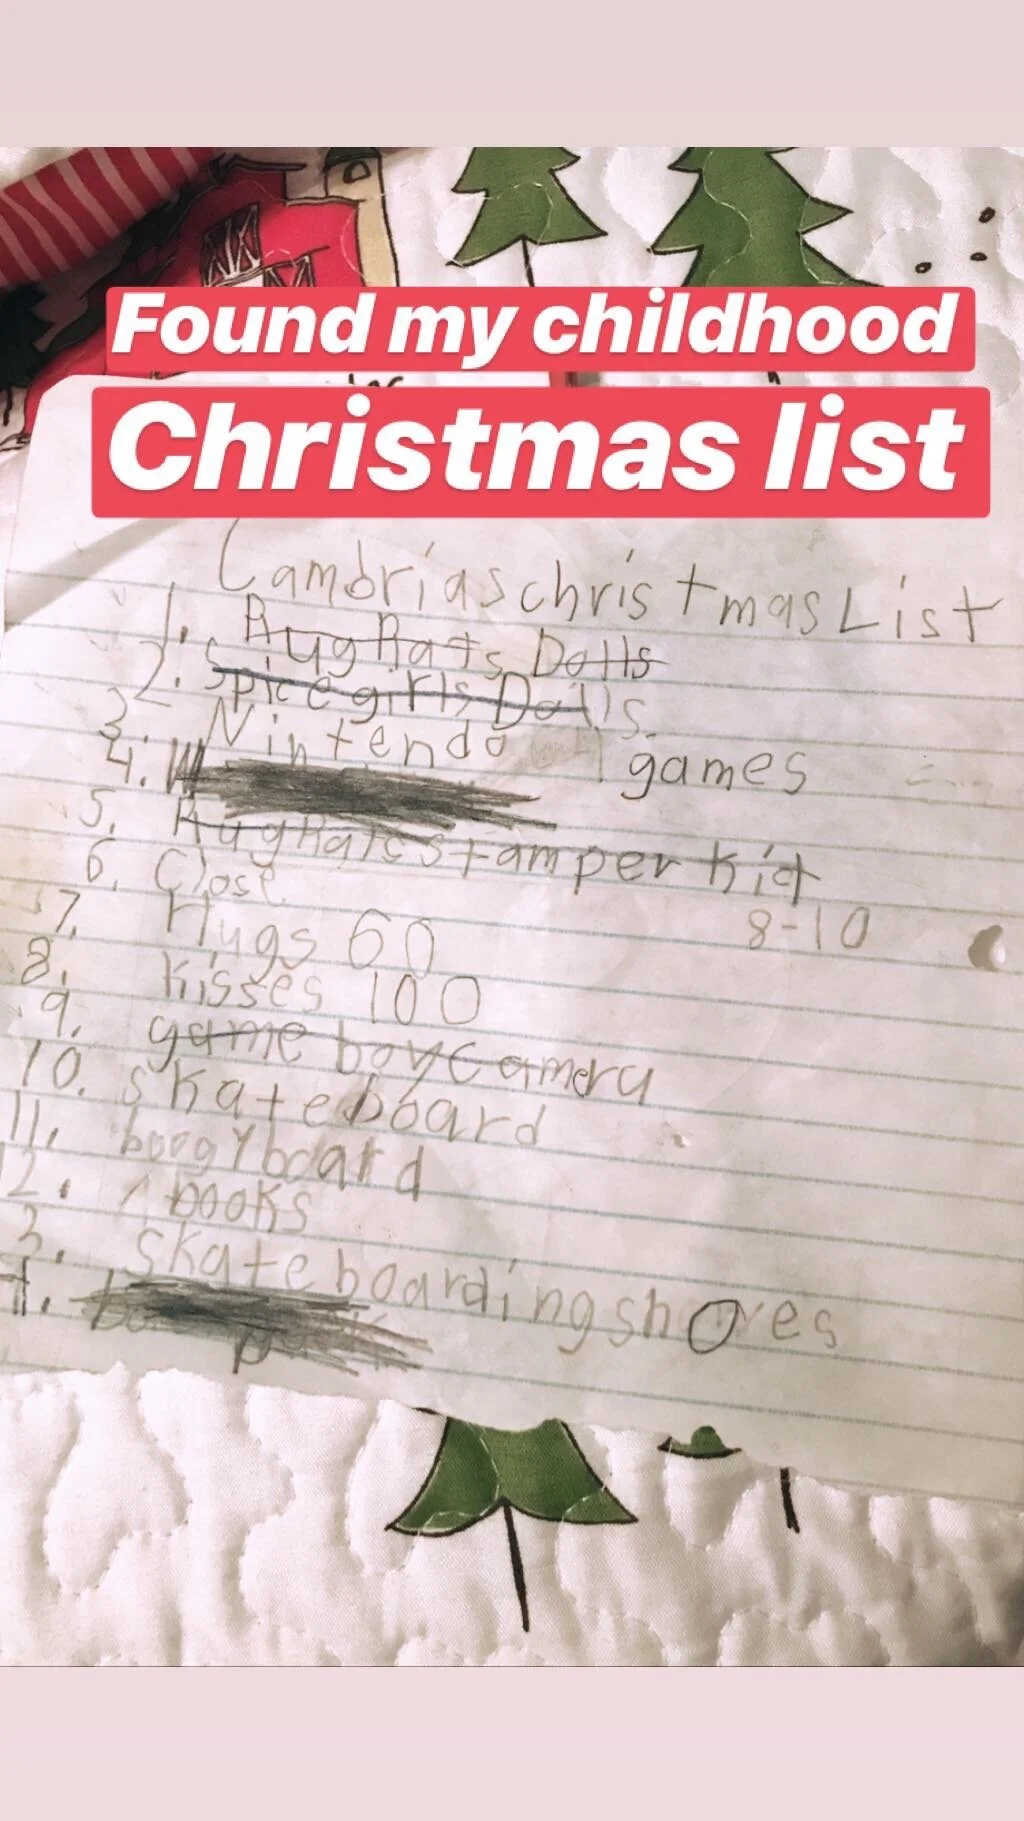 Found my childhood
Christmas list
Cambrias christmas List
1. RugRats Dolls
2. Spice girls Dolls
3. Nintendo games
4.
5. RugRats stamper kit
6. Close 8-10
7. Hugs 60
8. kisses 100
9. game boy Camera
10. skateboard
11. boogy board
12. books
3. skateboarding shoes
4.